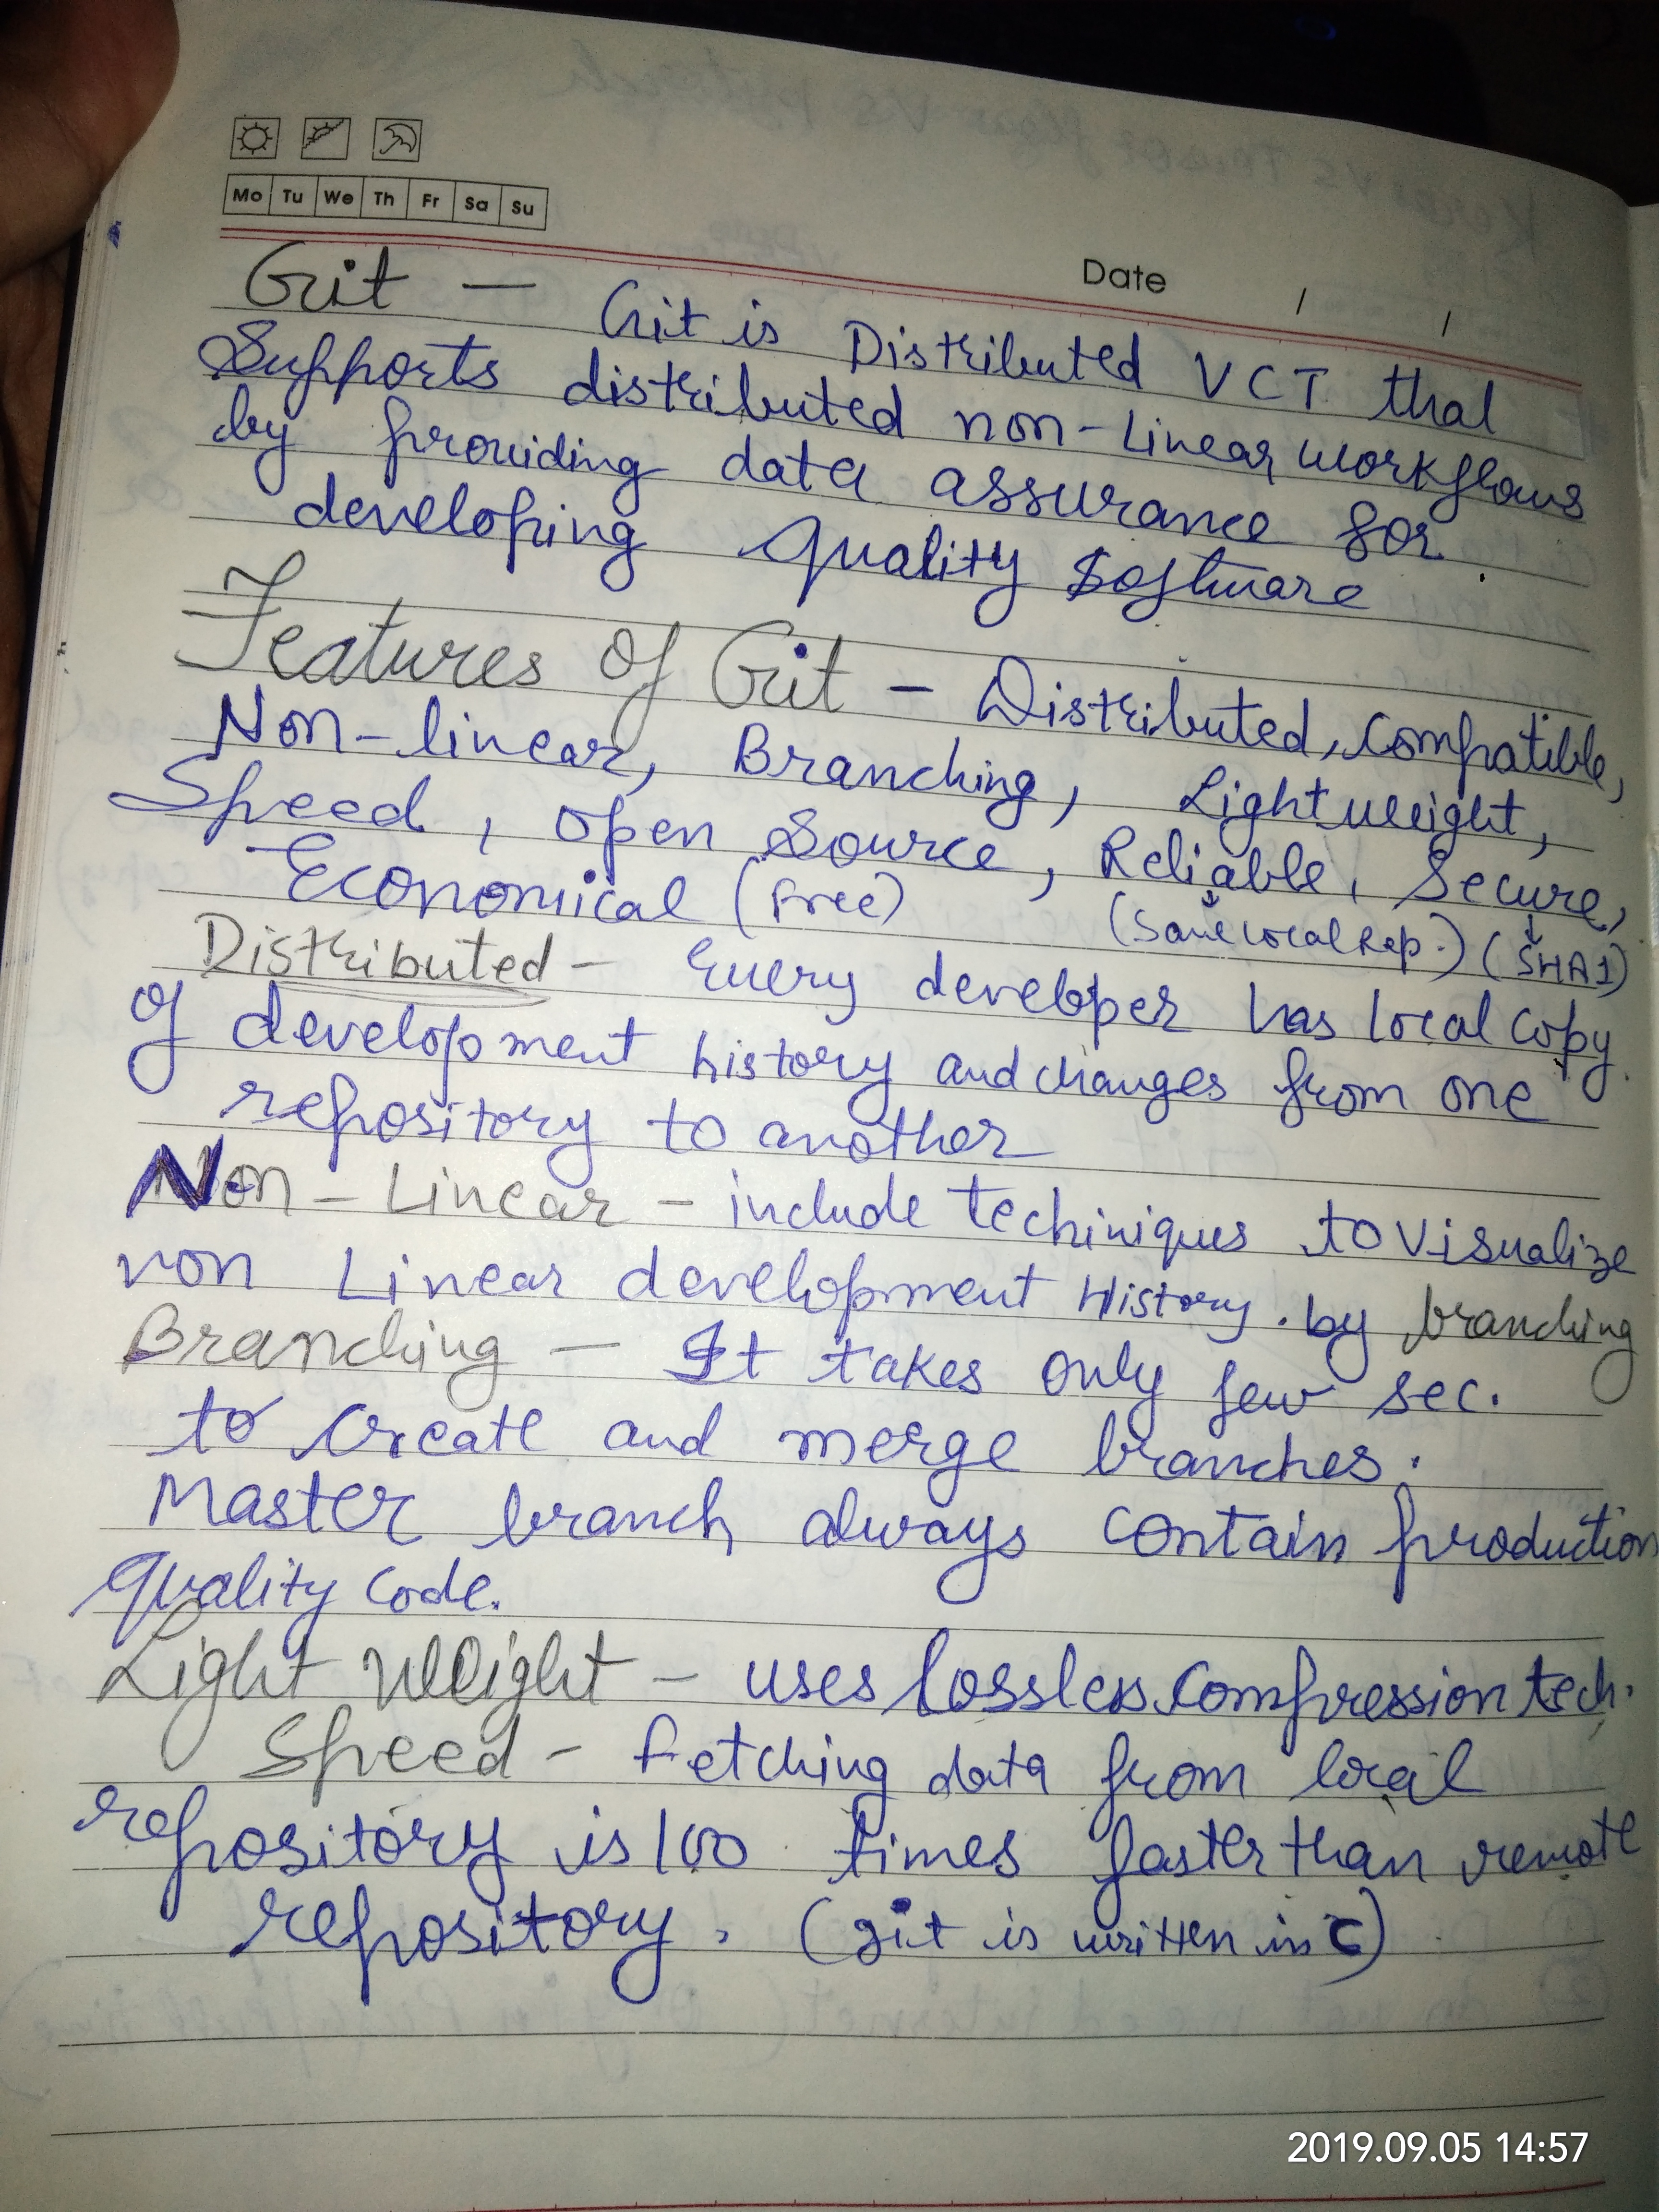 Mo Tu We Th Fr Sa Su
Date / /
Git — Git is Distributed VCT that
Supports distributed non-Linear workflows
by providing data assurance for
developing quality Software.
Features of Git - Distributed, Compatible,
Non-linear, Branching, Lightweight,
Speed, Open Source, Reliable, Secure,
Economical (Free) (Save Local Rep.) (SHA1)
Distributed - Every developer has local copy
of development history and changes from one
repository to another
Non-Linear - include techiniques to Visualize
non Linear development History. by branching
Branching — It takes only few sec.
to Create and merge branches.
Master branch always contain production
quality code.
Light Weight - uses lossless compression tech.
Speed - Fetching data from local
repository is 100 times faster than remote
repository. (git is written in C)
2019.09.05 14:57